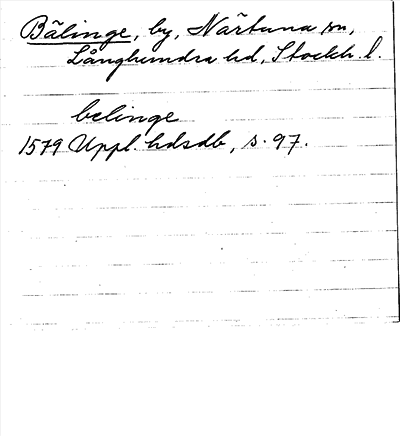 Bälinge, by, Närtuna sn,
Långhundra hd, Stockh. l.
belinge
1579 Uppl. hdsdb, s. 97.